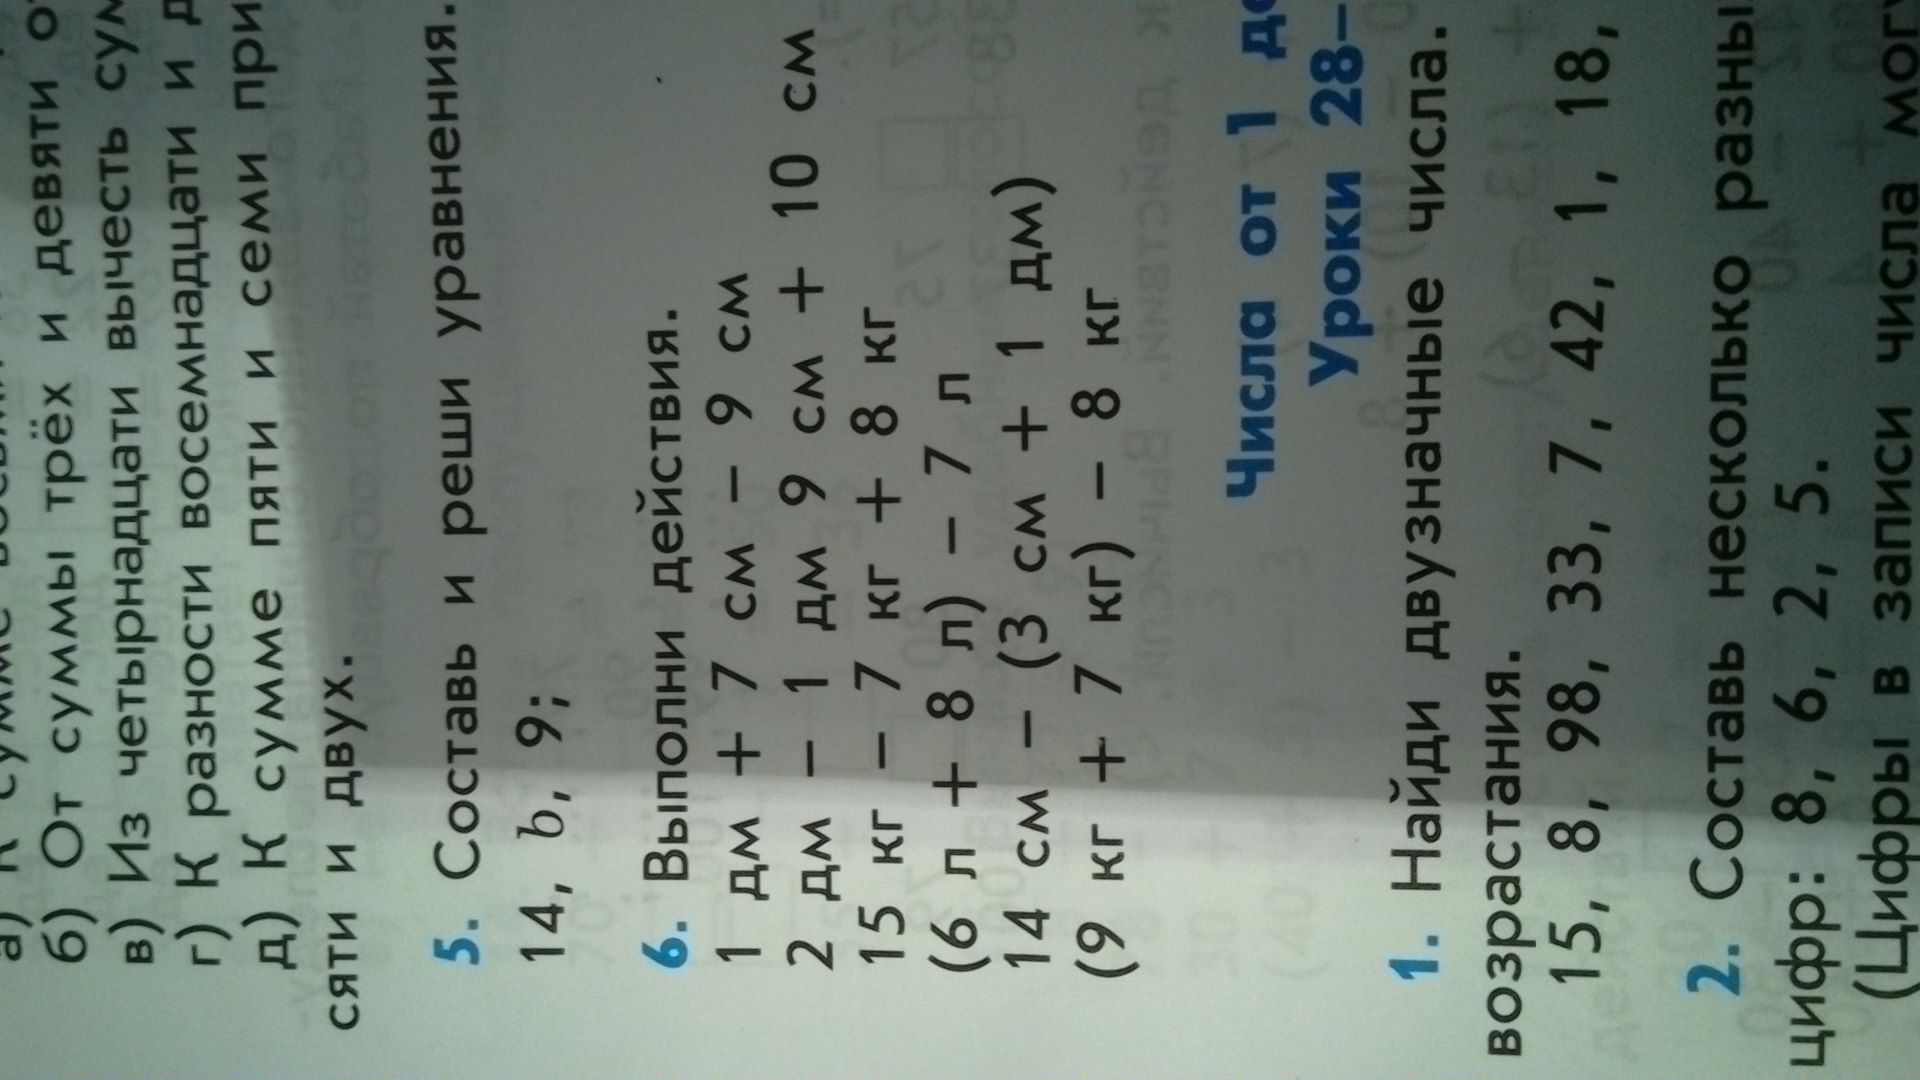 б) От суммы трёх и девяти
в) Из четырнадцати вычесть
г) К разности восемнадцати и
д) К сумме пяти и семи
сяти и двух.
5. Составь и реши уравнения.
14, b, 9;
6. Выполни действия.
1 дм + 7 см – 9 см
2 дм – 1 дм 9 см + 10 см
15 кг – 7 кг + 8 кг
(6 л + 8 л) – 7 л
14 см – (3 см + 1 дм)
(9 кг + 7 кг) – 8 кг
Числа от 1
Уроки 28–
1. Найди двузначные числа.
возрастания.
15, 8, 98, 33, 7, 42, 1, 18,
2. Составь несколько
цифр: 8, 6, 2, 5.
(Цифры в записи числа